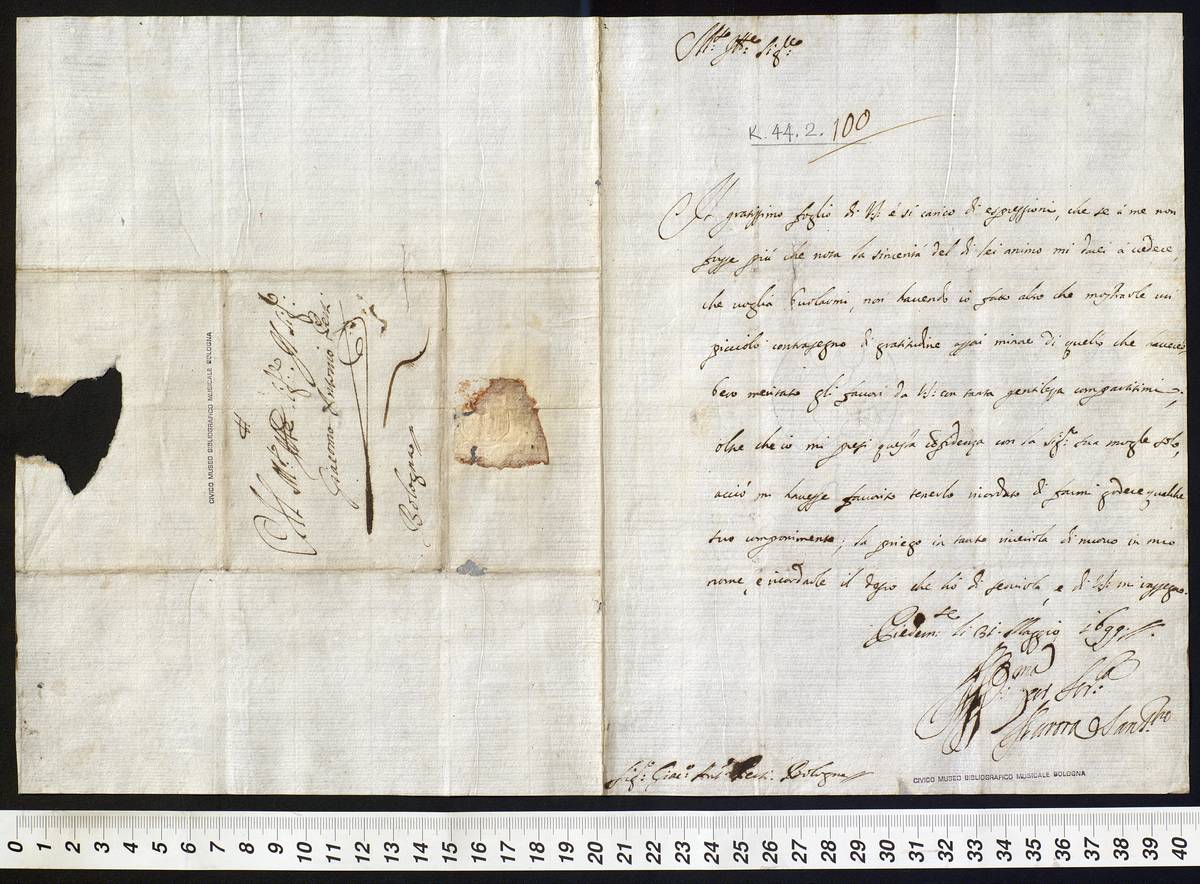 All Mto Illre Sigr Pr Sigr
Giacomo Antonio Perti
Bologna
CIVICO MUSEO BIBLIOGRAFICO MUSICALE BOLOGNA
Mto Illre Sigre
K. 44. 2. 100
Il gratissimo foglio di VS: è si carico di espressioni, che se à me non
fusse più che nota la sincerità del di lei animo mi darei à vedere,
che voglia burlarmi, non havendo io fatto altro che mostrarle un
piccolo contrasegno di gratitudine assai minore di quello che havereb,
bero meritato gli favori da VS: con tanta gentilezza compartitimi;
oltre che io mi presi questa confidenza con la Sigra sua moglie solo,
acciò mi havesse favorito tenerlo ricordato di farmi godere qualche
suo componimento; la priego in tanto riverirla di nuovo in mio
nome, e ricordarle il desio che hò di servirla, e di VS: mi rassegno.
Piedemte li 31. Maggio 1699.
Di VS:
Serva
Aurora San
Sigr Giaco Anto Perti. Bologna
CIVICO MUSEO BIBLIOGRAFICO MUSICALE BOLOGNA
0 1 2 3 4 5 6 7 8 9 10 11 12 13 14 15 16 17 18 19 20 21 22 23 24 25 26 27 28 29 30 31 32 33 34 35 36 37 38 39 40